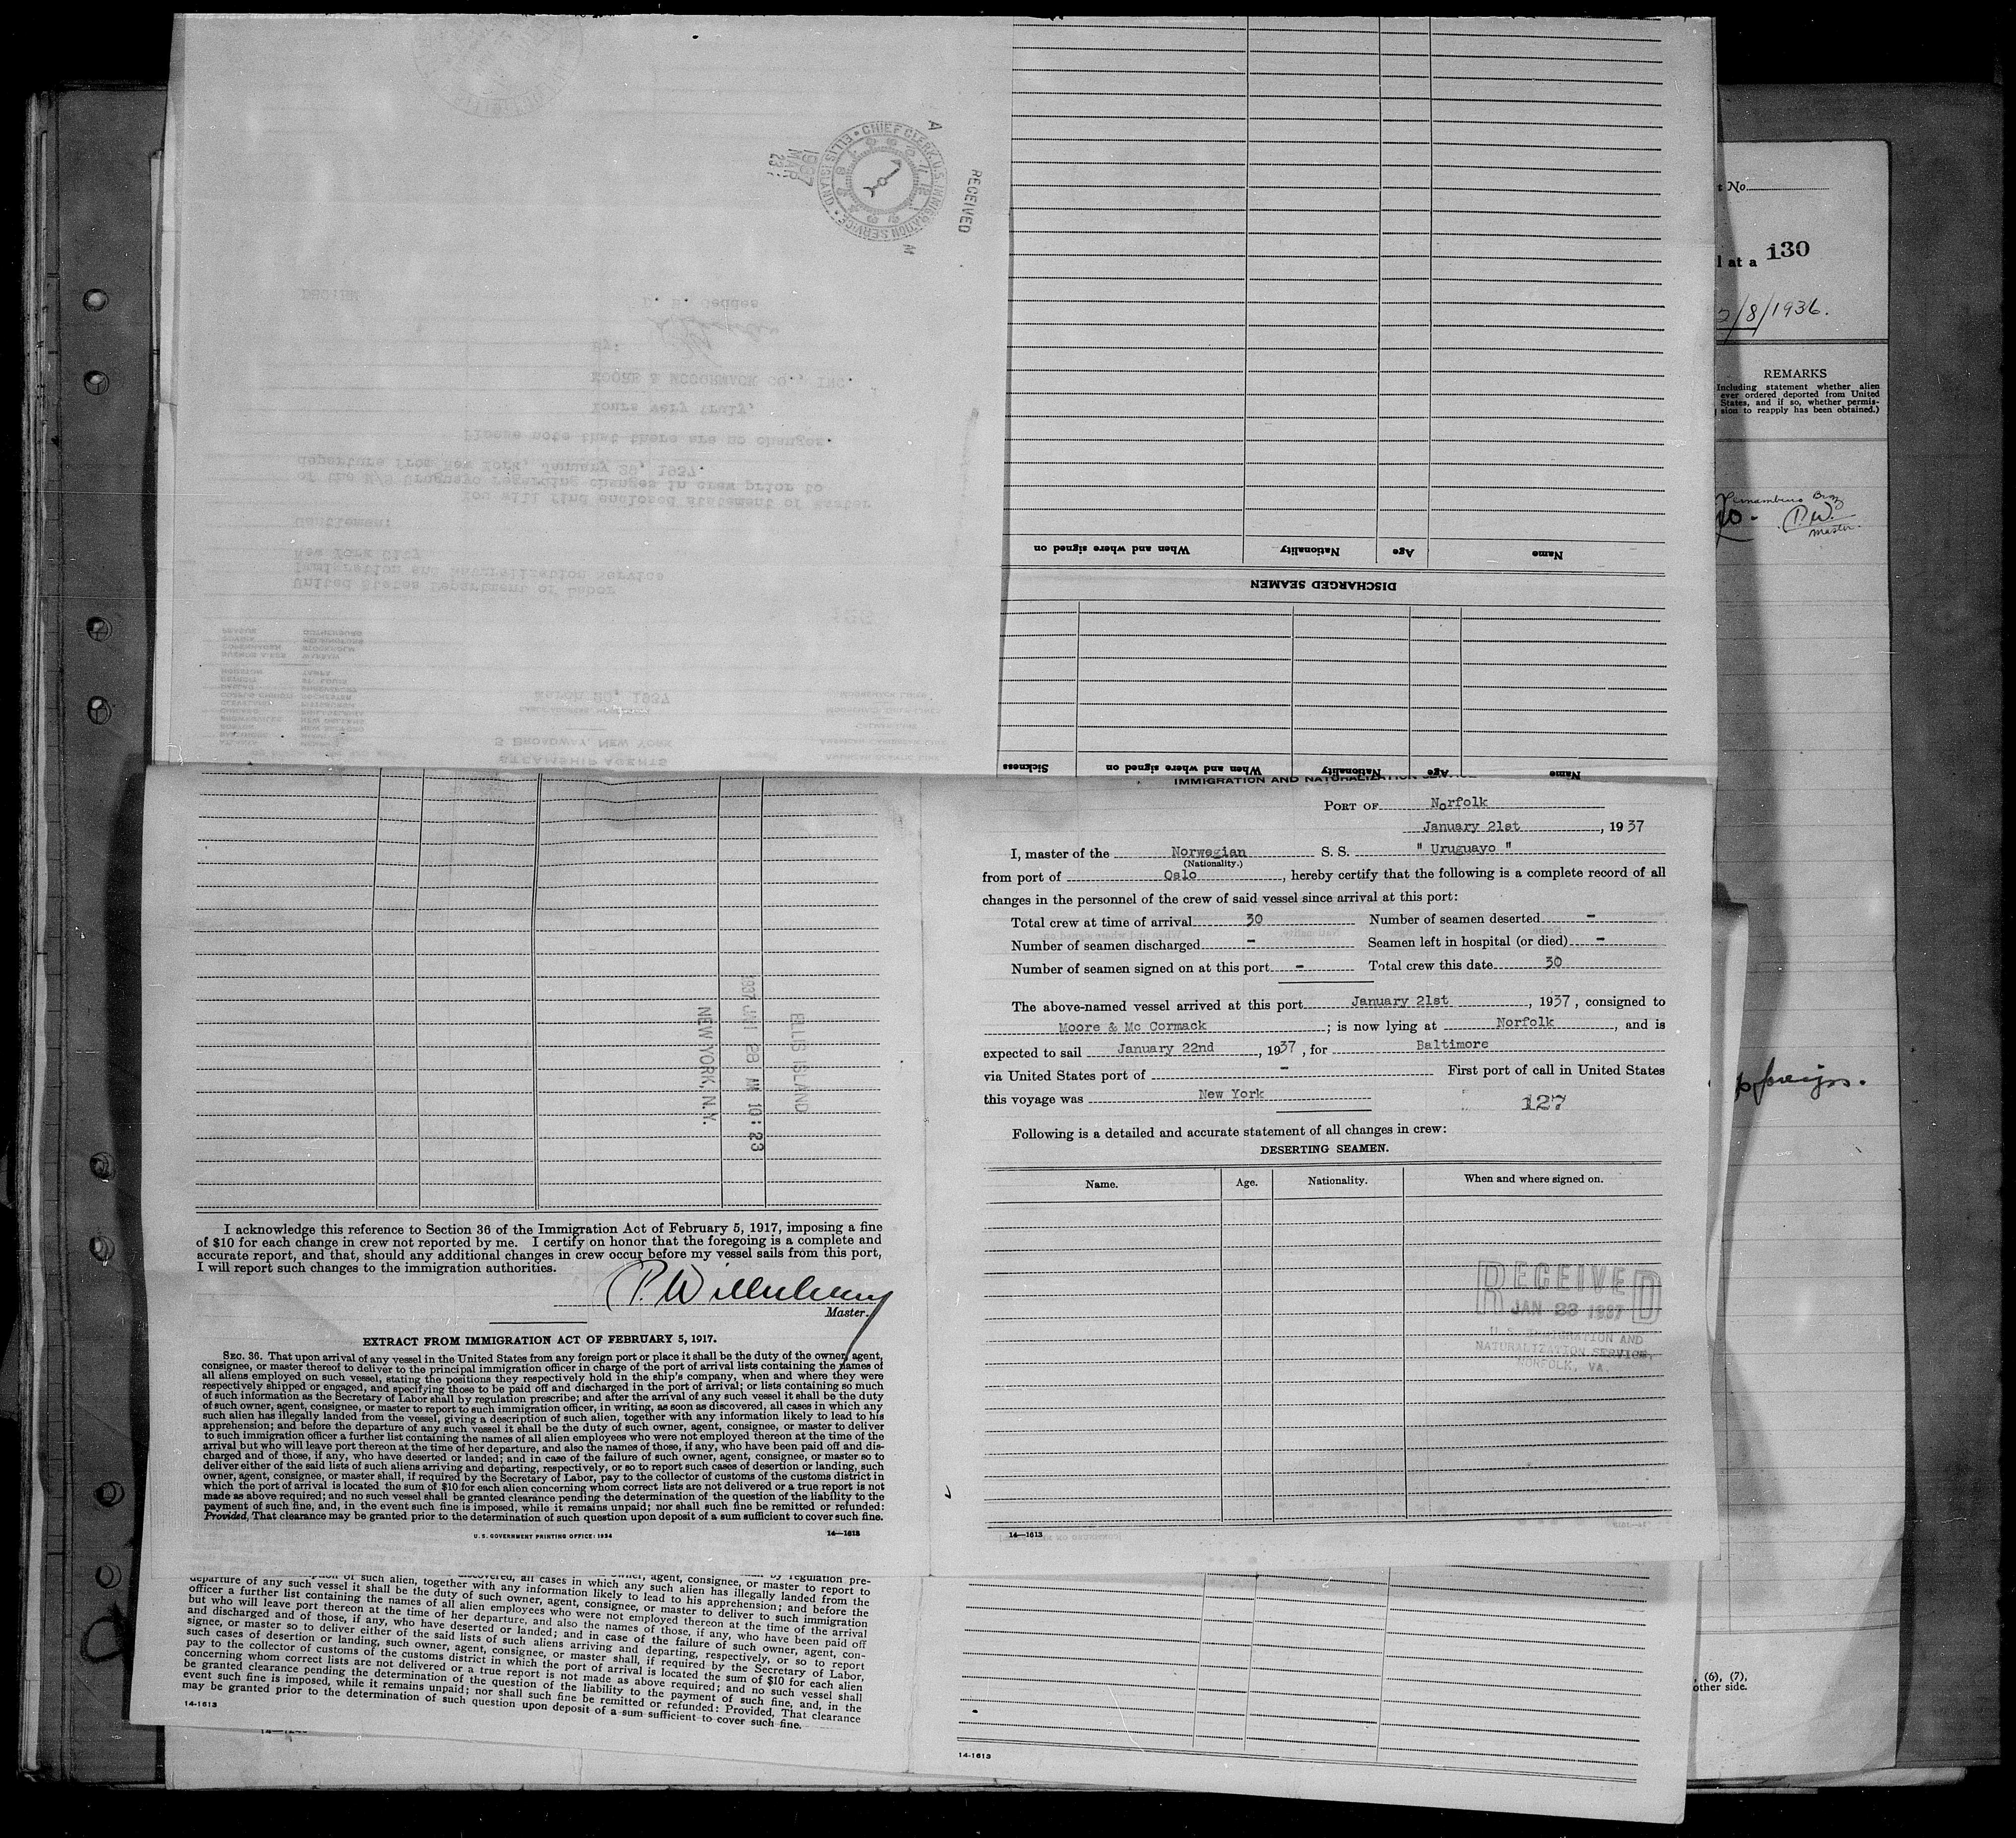 RECEIVED
CHIEF CLERK, U.S. IMMIGRATION SERVICE • ELLIS ISLAND •
1937
MAR
23
DBG:HM
D. B. Geddes
By:
MOORE & McCORMACK CO., INC.
Yours very truly,
Please note that there are no changes.
departure from New York, January 29, 1937.
of the M/S Uruguayo regarding changes in crew prior to
You will find enclosed statement of Master
Gentlemen:
New York City
Immigration and Naturalization Service
United States Department of Labor
March 20, 1937
5 BROADWAY, NEW YORK
STEAMSHIP AGENTS
Name
Age
Nationality
When and where signed on
DISCHARGED SEAMEN
Name
Age
Nationality
When and where signed on
Sickness
t No.
l at a
130
2/8/1936.
REMARKS
(Including statement whether alien
ever ordered deported from United
States, and if so, whether permis-
sion to reapply has been obtained.)
Pernambuco Braz
P.W.
Master.
foreign.
(6), (7),
other side.
IMMIGRATION AND NATURALIZATION
PORT OF Norfolk
January 21st, 1937
I, master of the Norwegian S. S. " Uruguayo "
(Nationality.)
from port of Oslo, hereby certify that the following is a complete record of all
changes in the personnel of the crew of said vessel since arrival at this port:
Total crew at time of arrival 30 Number of seamen deserted -
Number of seamen discharged - Seamen left in hospital (or died) -
Number of seamen signed on at this port - Total crew this date 30
The above-named vessel arrived at this port January 21st, 1937, consigned to
Moore & Mc Cormack; is now lying at Norfolk, and is
expected to sail January 22nd, 1937, for Baltimore
via United States port of - First port of call in United States
this voyage was New York
127
Following is a detailed and accurate statement of all changes in crew:
DESERTING SEAMEN.
Name. Age. Nationality. When and where signed on.
RECEIVED
JAN 23 1937
U. S. IMMIGRATION AND
NATURALIZATION SERVICE,
NORFOLK, VA.
14—1613
ELLIS ISLAND
1937 JAN 28 AM 10:23
NEW YORK, N.Y.
I acknowledge this reference to Section 36 of the Immigration Act of February 5, 1917, imposing a fine
of $10 for each change in crew not reported by me. I certify on honor that the foregoing is a complete and
accurate report, and that, should any additional changes in crew occur before my vessel sails from this port,
I will report such changes to the immigration authorities.
Master.
EXTRACT FROM IMMIGRATION ACT OF FEBRUARY 5, 1917.
SEC. 36. That upon arrival of any vessel in the United States from any foreign port or place it shall be the duty of the owner, agent,
consignee, or master thereof to deliver to the principal immigration officer in charge of the port of arrival lists containing the names of
all aliens employed on such vessel, stating the positions they respectively hold in the ship's company, when and where they were
respectively shipped or engaged, and specifying those to be paid off and discharged in the port of arrival; or lists containing so much
of such information as the Secretary of Labor shall by regulation prescribe; and after the arrival of any such vessel it shall be the duty
of such owner, agent, consignee, or master to report to such immigration officer, in writing, as soon as discovered, all cases in which any
such alien has illegally landed from the vessel, giving a description of such alien, together with any information likely to lead to his
apprehension; and before the departure of any such vessel it shall be the duty of such owner, agent, consignee, or master to deliver
to such immigration officer a further list containing the names of all alien employees who were not employed thereon at the time of the
arrival but who will leave port thereon at the time of her departure, and also the names of those, if any, who have been paid off and dis-
charged and of those, if any, who have deserted or landed; and in case of the failure of such owner, agent, consignee, or master so to
deliver either of the said lists of such aliens arriving and departing, respectively, or so to report such cases of desertion or landing, such
owner, agent, consignee, or master shall, if required by the Secretary of Labor, pay to the collector of customs of the customs district in
which the port of arrival is located the sum of $10 for each alien concerning whom correct lists are not delivered or a true report is not
made as above required; and no such vessel shall be granted clearance pending the determination of the question of the liability to the
payment of such fine, and, in the event such fine is imposed, while it remains unpaid; nor shall such fine be remitted or refunded:
Provided, That clearance may be granted prior to the determination of such question upon deposit of a sum sufficient to cover such fine.
U. S. GOVERNMENT PRINTING OFFICE: 1934 14—1613
of such alien, together with any information likely to lead to his apprehension; all cases in which any such alien has illegally landed from the
departure of any such vessel it shall be the duty of such owner, agent, consignee, or master to deliver to such immigration
officer a further list containing the names of all alien employees who were not employed thereon at the time of the arrival
but who will leave port thereon at the time of her departure, and also the names of those, if any, who have been paid off
and discharged and of those, if any, who have deserted or landed; and in case of the failure of such owner, agent, con-
signee, or master so to deliver either of the said lists of such aliens arriving and departing, respectively, or so to report
such cases of desertion or landing, such owner, agent, consignee, or master shall, if required by the Secretary of Labor,
pay to the collector of customs of the customs district in which the port of arrival is located the sum of $10 for each alien
concerning whom correct lists are not delivered or a true report is not made as above required; and no such vessel shall
be granted clearance pending the determination of the question of the liability to the payment of such fine, and, in the
event such fine is imposed, while it remains unpaid; nor shall such fine be remitted or refunded: Provided, That clearance
may be granted prior to the determination of such question upon deposit of a sum sufficient to cover such fine.
14-1613
14-1613